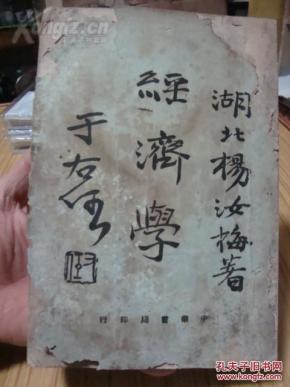 湖北楊汝梅著
經濟學
于右任
中華書局印行
Kongfz.com
孔夫子旧书网